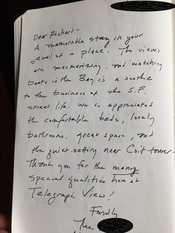 Dear Richard –
A memorable stay in your
jewel of a place. The views
are mesmerizing, and watching
boats in the Bay is a soothe
to the business of the S.F.
street life. We so appreciated
the comfortable beds, lovely
bathrooms, great space, and
the quiet setting near Coit tower.
Thank you for the many
special qualities here at
Telegraph View!
Fondly